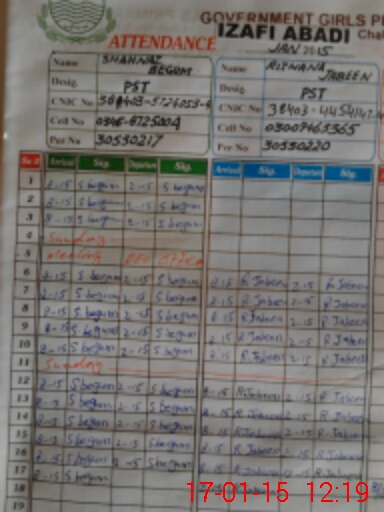 GOVERNMENT GIRLS P
IZAFI ABADI Cha
ATTENDANCE
JAN 2015
Name SHAHNAZ BEGUM
Desig. PST
CNIC No
Cell No
Per No 30550217
Name REHANA JABEEN
Desig. PST
CNIC No
Cell No 03007465565
Per No 30550220
Sr. # Arrival Sig. Departure Sig. Arrival Sig. Departure Sig.
1 8-15 S begum 2-15 S begum
2 8-15 S begum 2-15 S begum
3 8-15 S begum 2-15 S begum
4 Sunday
5 Meeting DEO Office
6 8-15 S begum 2-15 S begum 8-15 R Jabeen 2-15 R Jabeen
7 8-15 S begum 2-15 S begum 8-15 R Jabeen 2-15 R Jabeen
8 8-15 S begum 2-15 S begum 8-15 R Jabeen 2-15 R Jabeen
9 8-15 S begum 2-15 S begum 8-15 R Jabeen 2-15 R Jabeen
10 8-15 S begum 2-15 S begum 8-15 R Jabeen 2-15 R Jabeen
11 Sunday
12 8-15 S begum 2-15 S begum 8-15 R Jabeen 2-15 R Jabeen
13 8-15 S begum 2-15 S begum 8-15 R Jabeen 2-15 R Jabeen
14 8-15 S begum 2-15 S begum 8-15 R Jabeen 2-15 R Jabeen
15 8-15 S begum 2-15 S begum 8-15 R Jabeen 2-15 R Jabeen
16 8-15 S begum 2-15 S begum 8-15 R Jabeen 2-15 R Jabeen
17 8-15 S begum
18
19
17-01-15 12:19